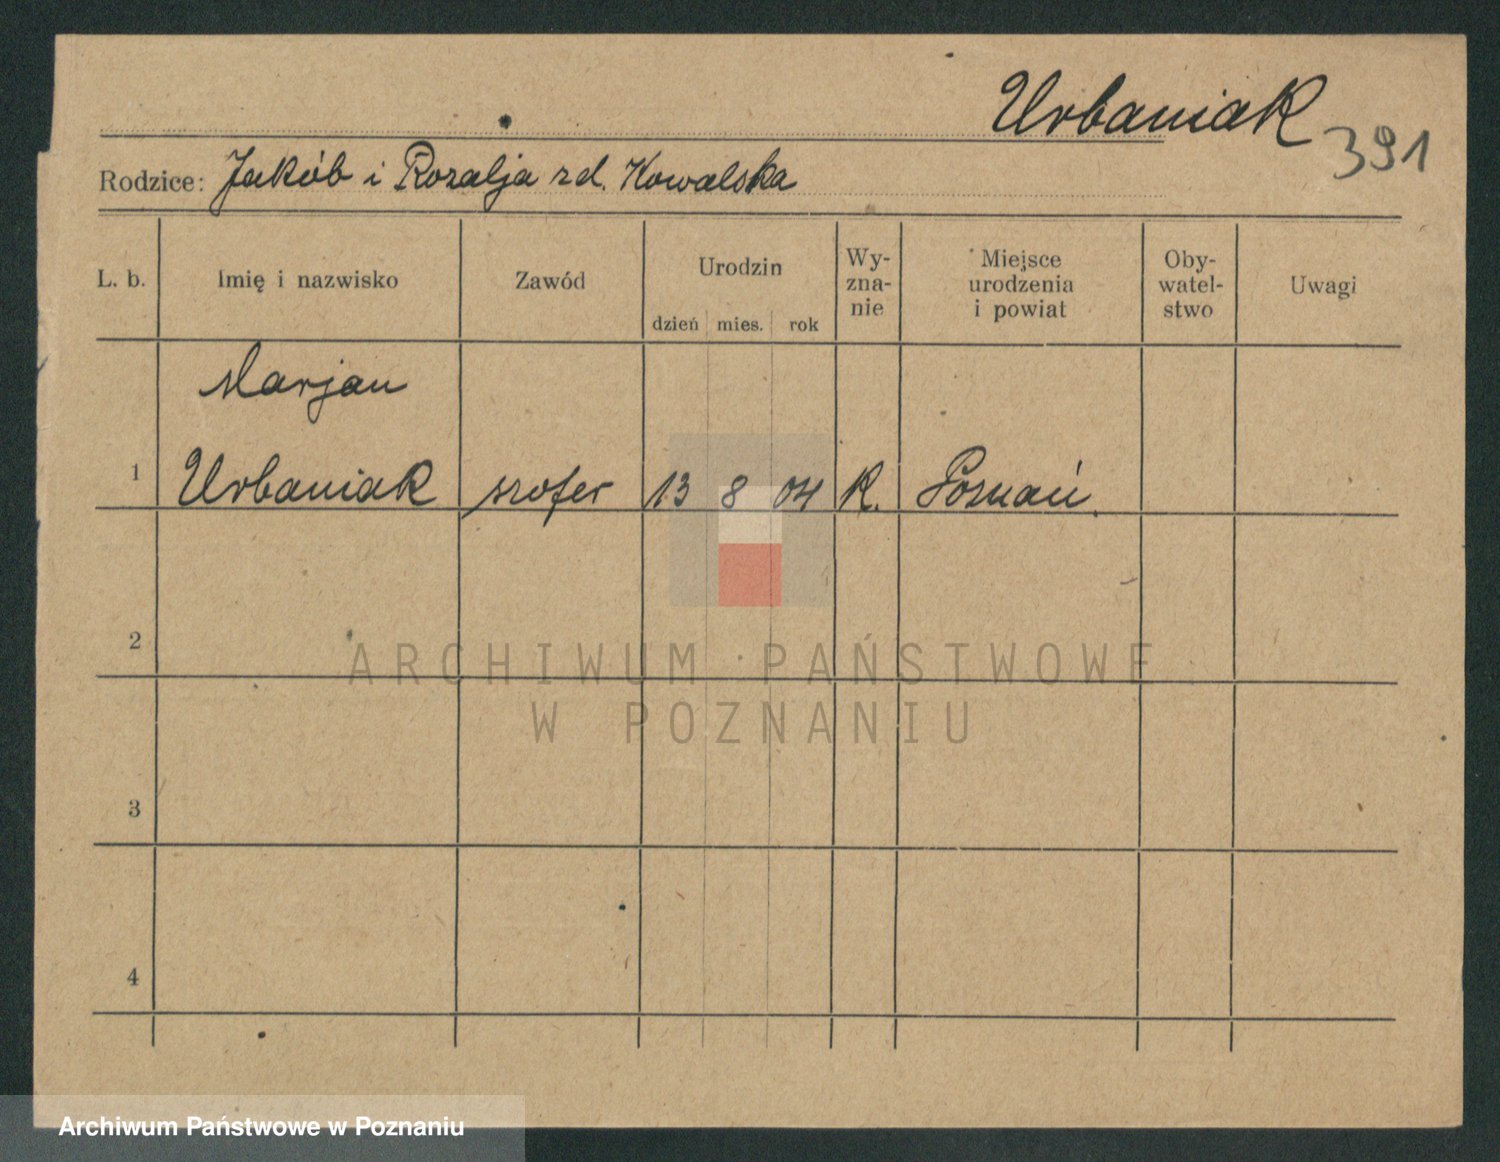 Urbaniak
391
Rodzice: Jakób i Rozalja zd. Kowalska
L. b. Imię i nazwisko Zawód Urodzin Wy-zna-nie Miejsce urodzenia i powiat Oby-watel-stwo Uwagi
dzień mies. rok
Marjan
1 Urbaniak szofer 13 8 04 K. Poznań.
2
ARCHIWUM PAŃSTWOWE
W POZNANIU
3
4
Archiwum Państwowe w Poznaniu